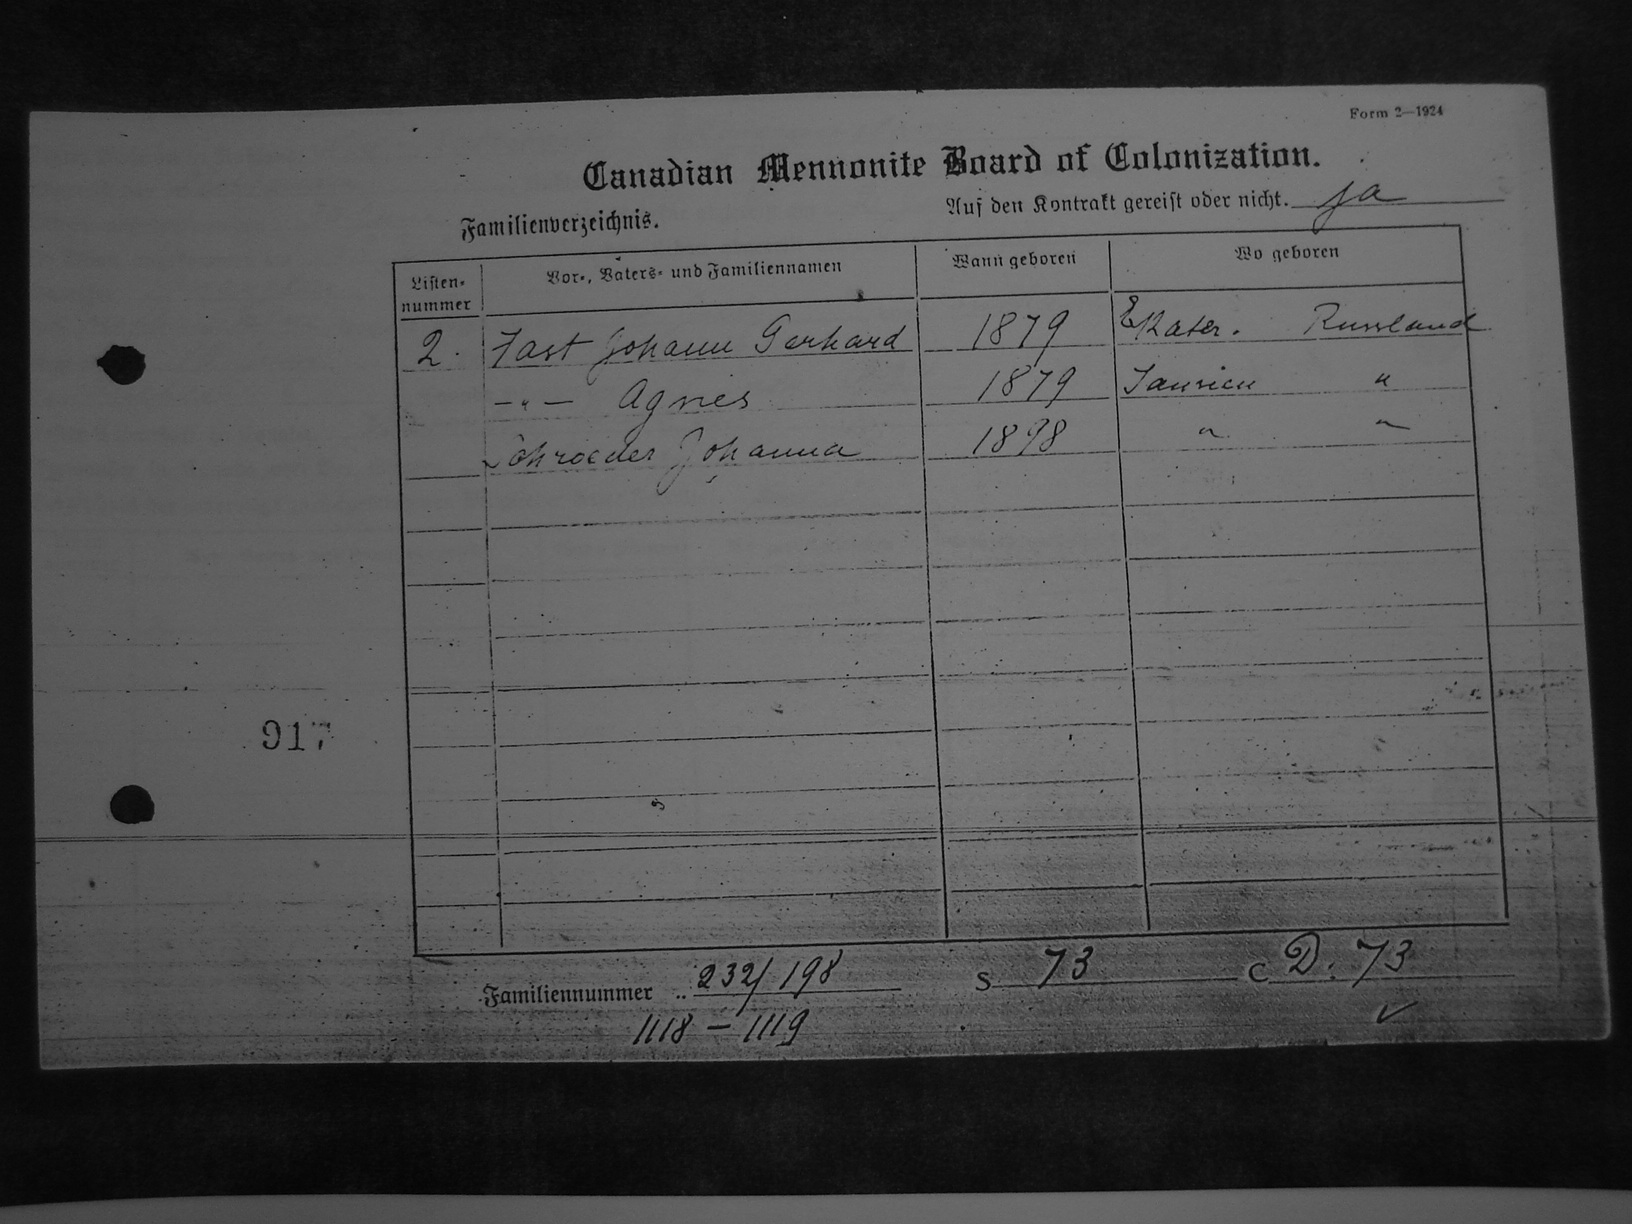 Form 2—1924
Canadian Mennonite Board of Colonization.
Auf den Kontrakt gereist oder nicht. ja
Familienverzeichnis.
Listen-
nummer
Vor-, Vaters- und Familiennamen
Wann geboren
Wo geboren
2. Fast Johann Gerhard 1879 Ekater. Russland
-"- Agnes 1879 Taurien "
Schroeder Johanna 1898 " "
917
Familiennummer 232/198 S 73 C D. 73
1118 - 1119 ✓